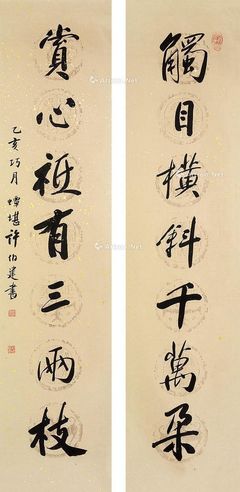 觸目橫斜千萬朵
賞心祗有三兩枝
乙亥巧月 嘽堪許伯建書